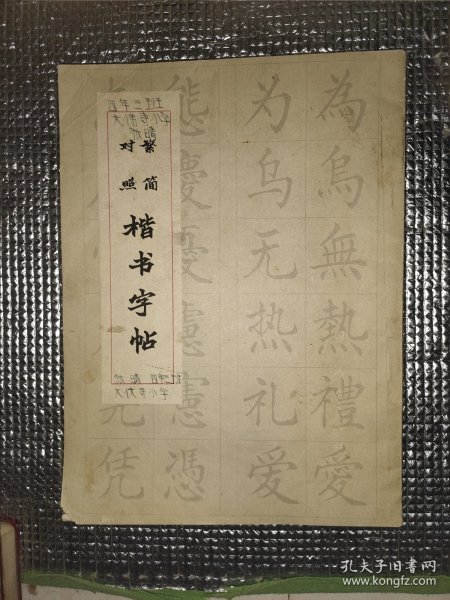 四年三班
大佛寺小学
张晴
繁简
对照
楷书字帖
张晴 四年三班
大佛寺小学
為烏無熱禮愛
为乌无热礼爱
態慶憂憲憑
凭
孔夫子旧书网
www.kongfz.com